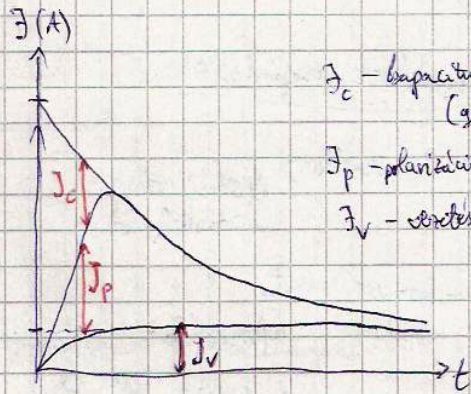 J(A)
J_c - kapacitu
(g
J_p - polarizáci
J_v - vezetés
J_c
J_p
J_v
t